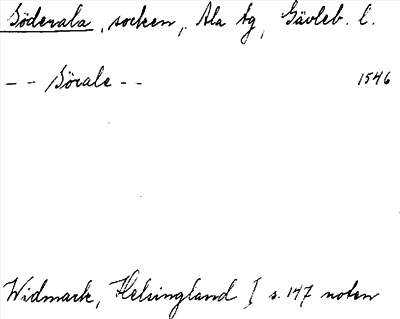 Söderala, socken, Ala tg, Gävleb. l.
-- Sörale -- 1546
Widmark, Helsingland I s. 147 noten